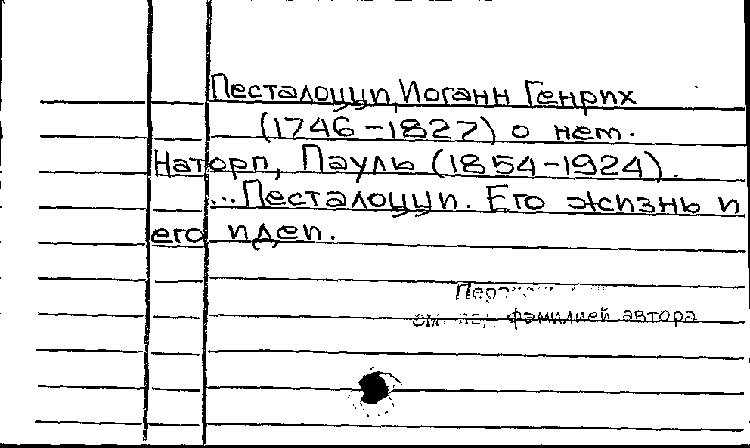 Песталоцци, Иоганн Генрих
(1746-1827) о нем.
Наторп, Пауль (1854-1924).
...Песталоцци. Его жизнь и
его идеи.
фамилией автора